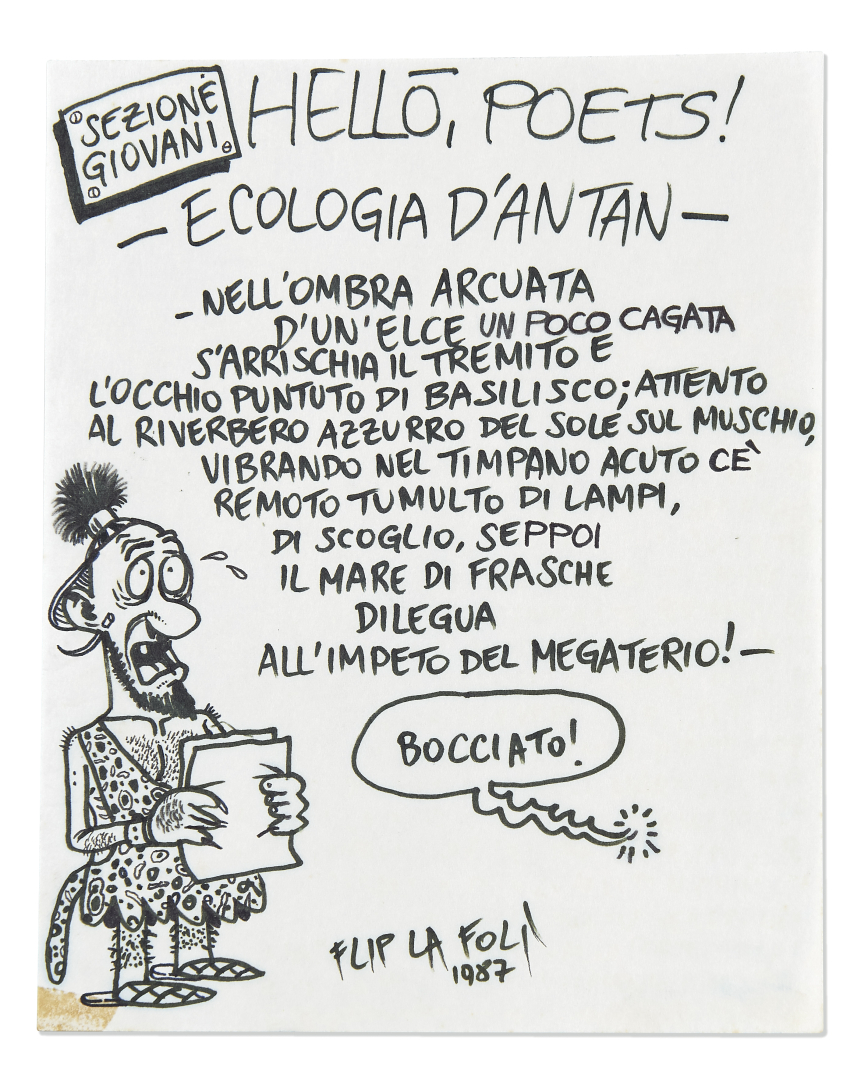 SEZIONE
GIOVANI
HELLŌ, POETS!
— ECOLOGIA D'ANTAN —
— NELL'OMBRA ARCUATA
D'UN'ELCE UN POCO CAGATA
S'ARRISCHIA IL TREMITO E
L'OCCHIO PUNTUTO DI BASILISCO; ATTENTO
AL RIVERBERO AZZURRO DEL SOLE SUL MUSCHIO,
VIBRANDO NEL TIMPANO ACUTO CE`
REMOTO TUMULTO DI LAMPI,
DI SCOGLIO, SEPPOI
IL MARE DI FRASCHE
DILEGUA
ALL'IMPETO DEL MEGATERIO! —
BOCCIATO!
FLIP LA FOLÌ
1987